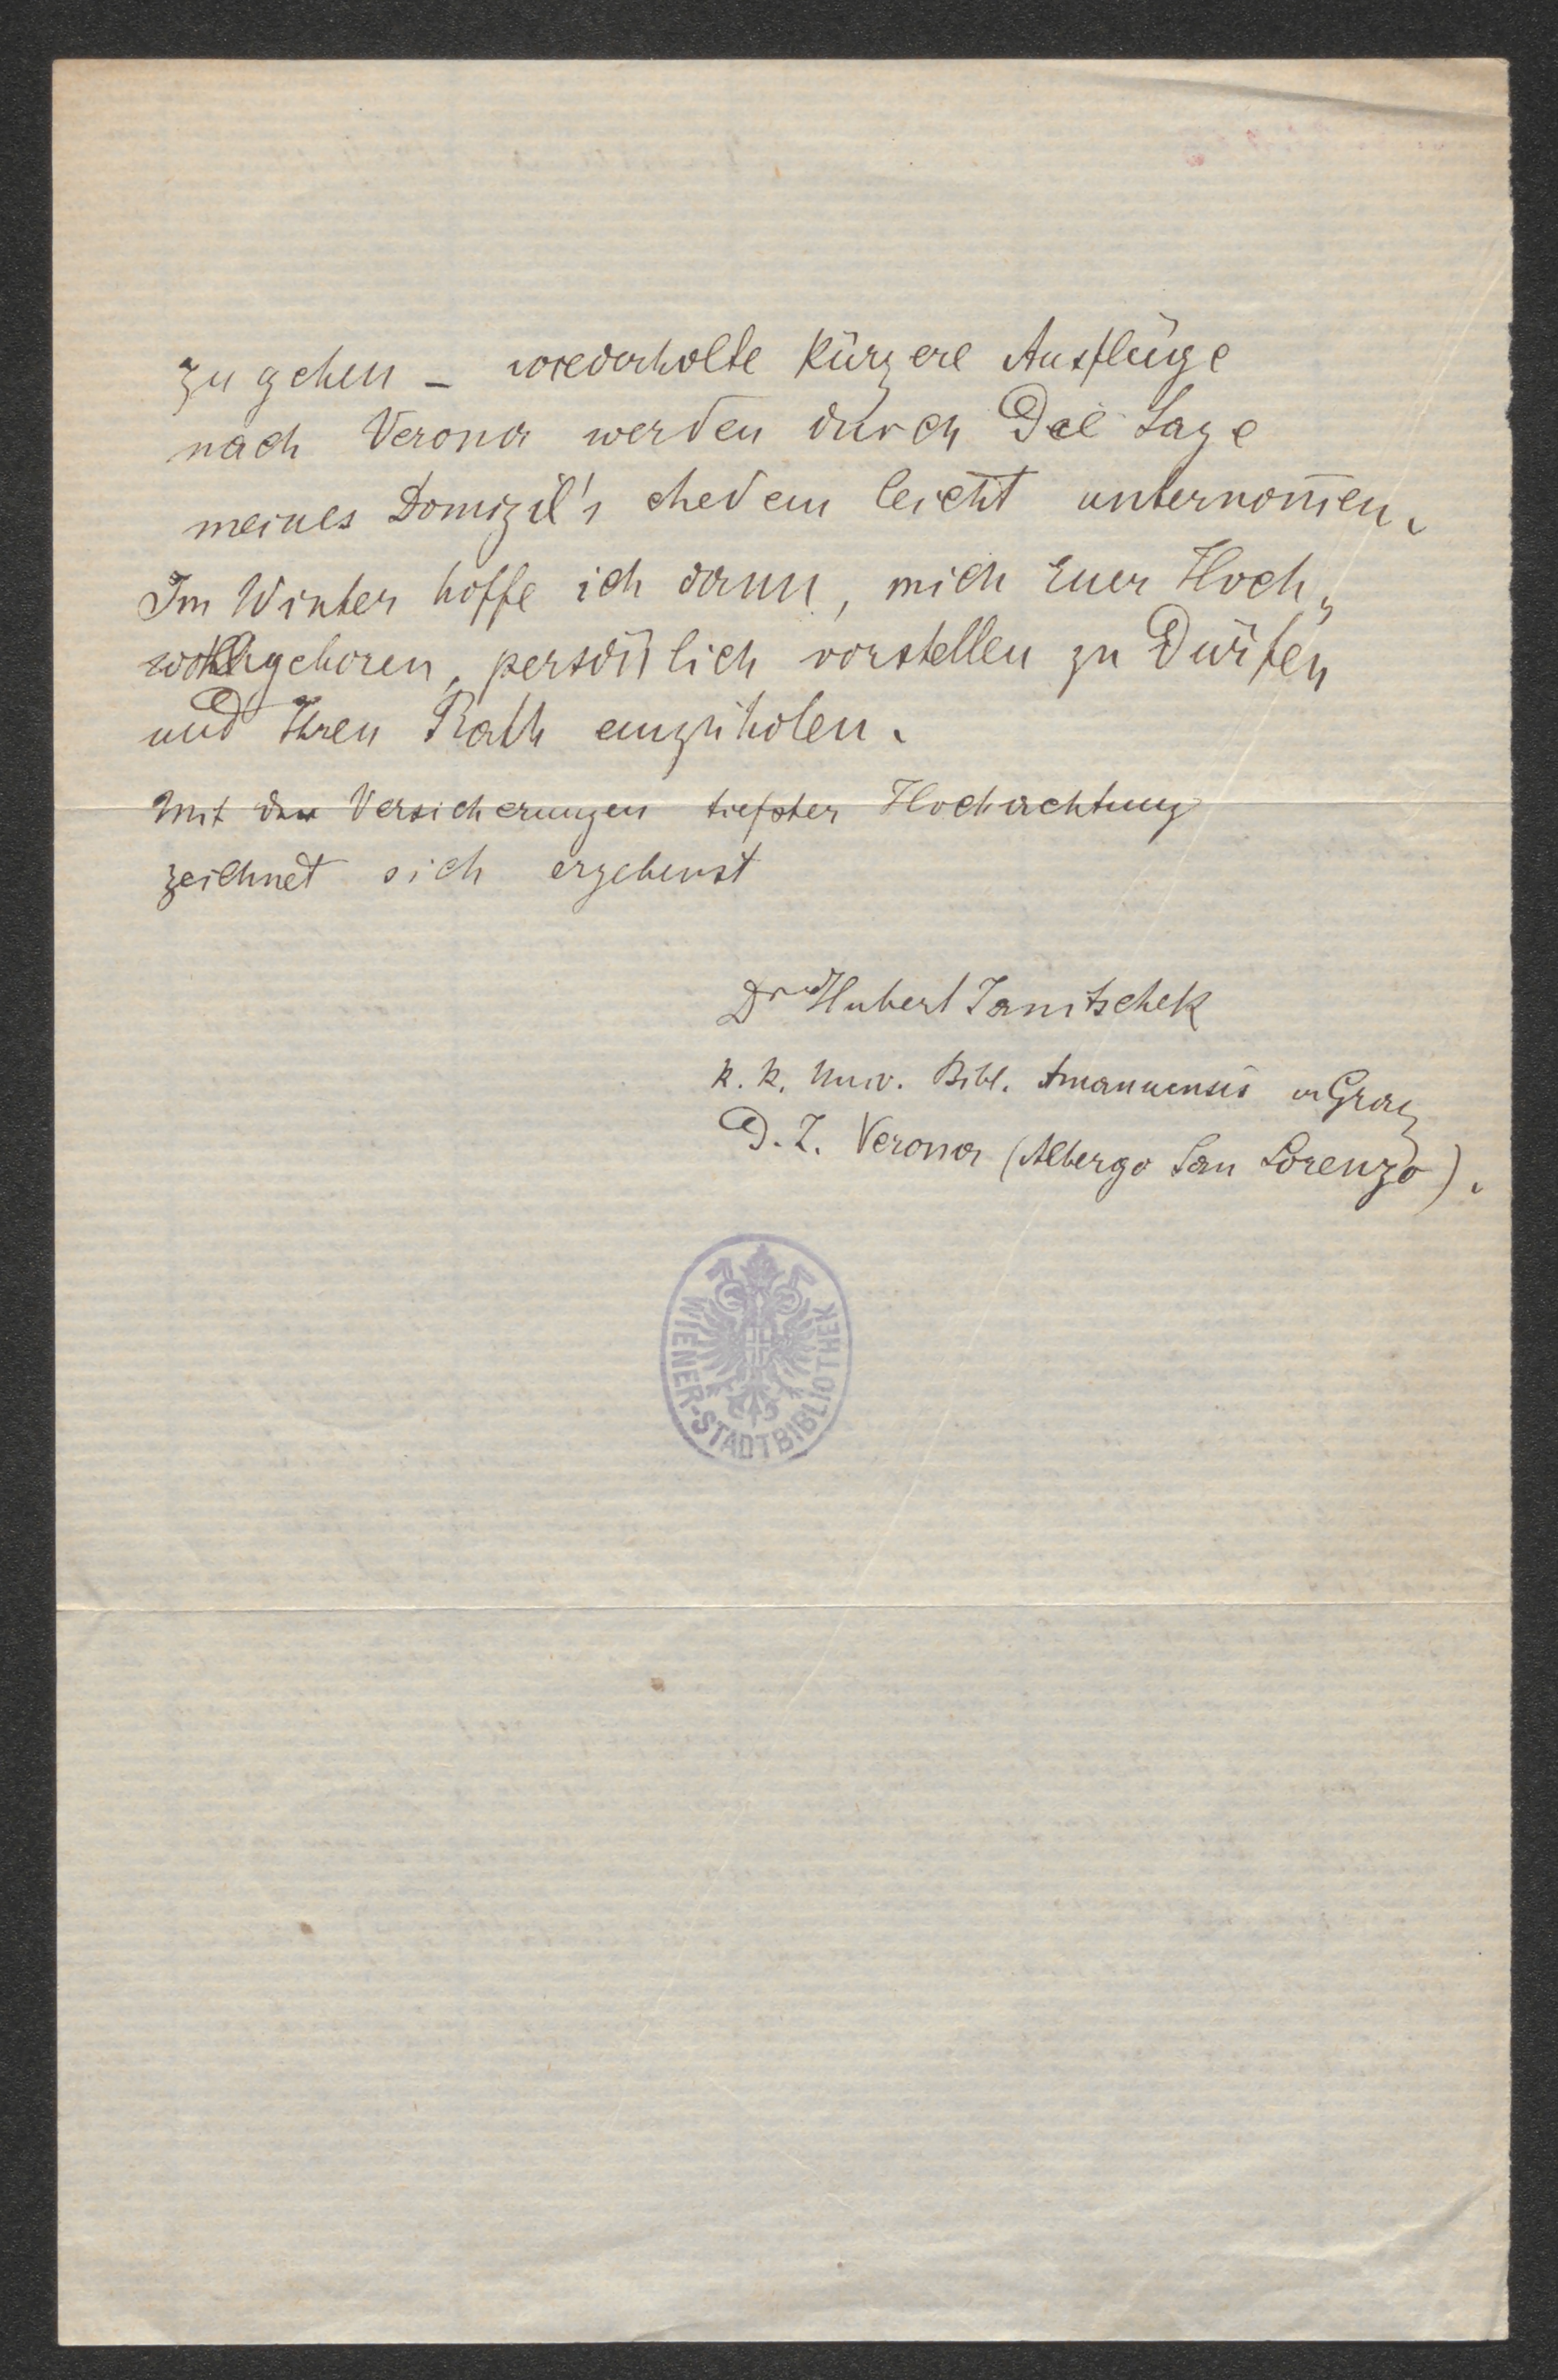 zu gehen – wiederholte kürzere Ausflüge
nach Verona werden durch die Lage
meines Domizil's ehedem leicht unternom̄en.
Im Winter hoffe ich dann, mich Euer Hoch„
wohlgeboren, persön̄lich vorstellen zu dürfen
und Ihren Rath einzuholen.
Mit den Versicherungen tiefster Hochachtung
zeichnet sich ergebenst
Dr Hubert Janitschek
k. k. Univ. Bibl. Amanuensis in Graz
D. Z. Verona (Albergo San Lorenzo).
WIENER-STADTBIBLIOTHEK